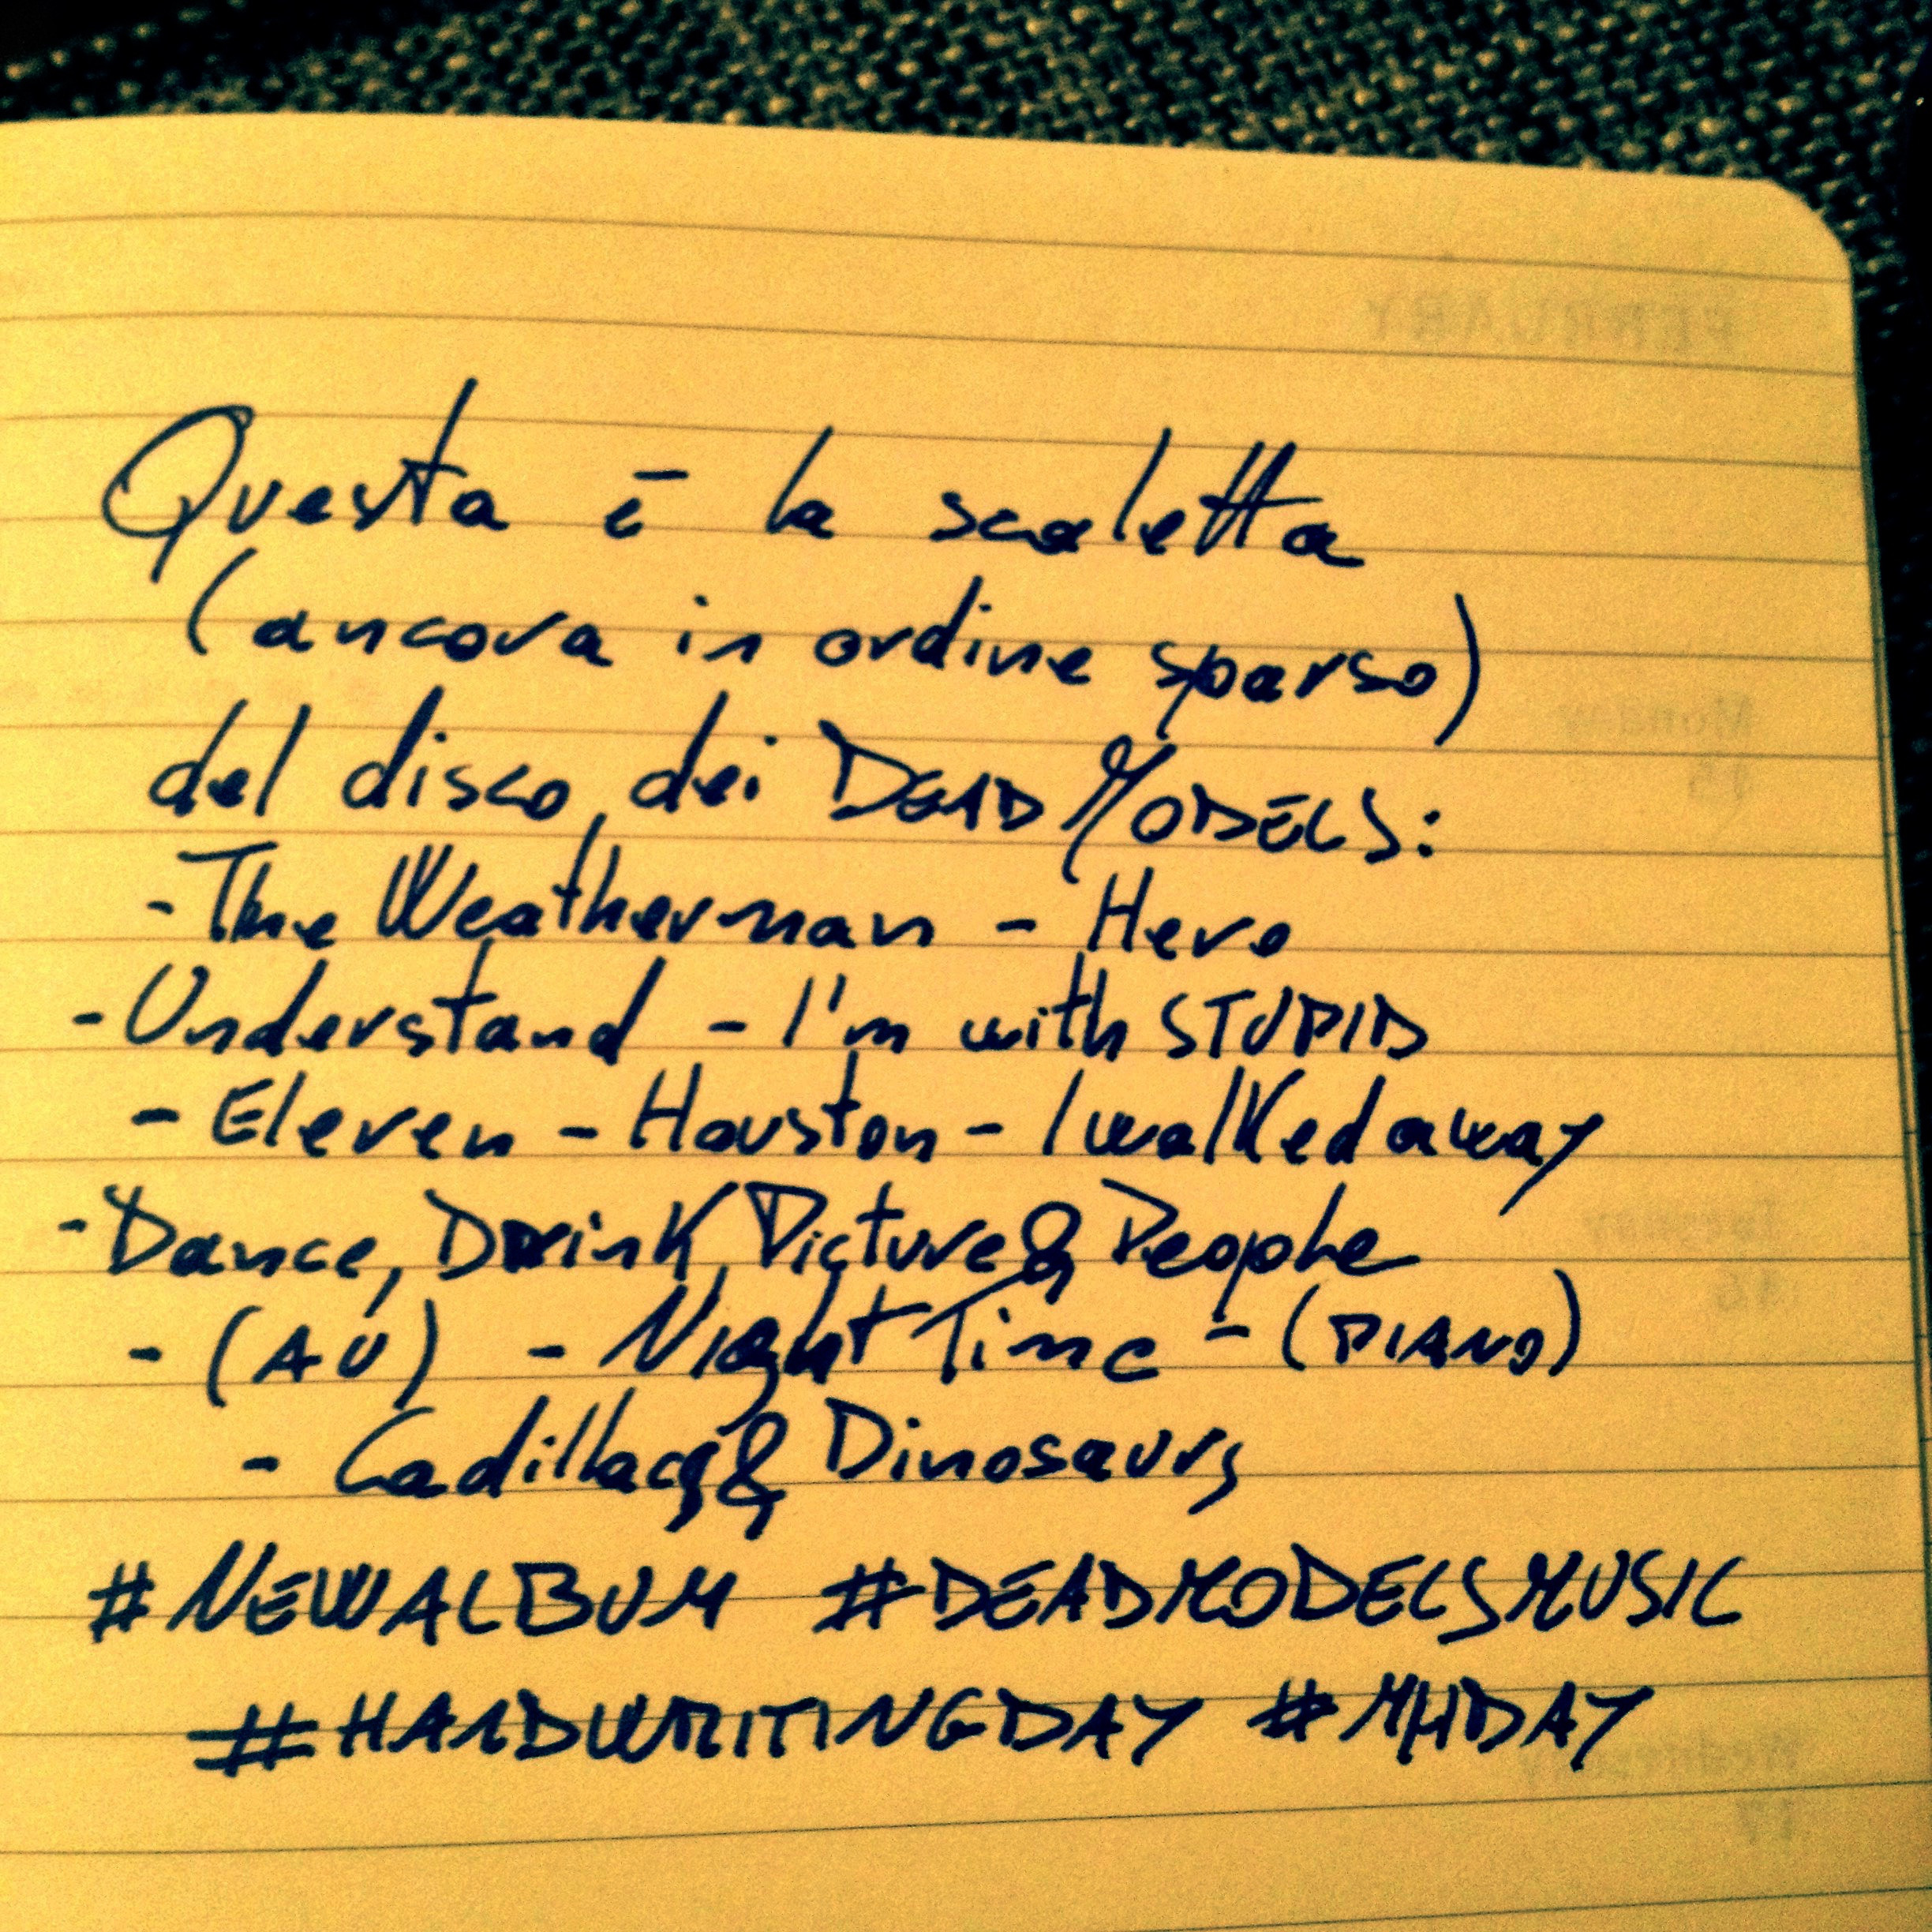 FEBRUARY
Questa è la scaletta
(ancora in ordine sparso)
Monday
15
del disco dei DEAD MODELS:
- The Weatherman - Hero
- Understand - I'm with STUPID
- Eleven - Houston - I walked away
Tuesday
16
- Dance, Drink, Picture & People
- (AU) - Night Time - (PIANO)
- Cadillacs & Dinosaurs
#NEWALBUM #DEADMODELSMUSIC
#HANDWRITINGDAY #MHDAY
Wednesday
17